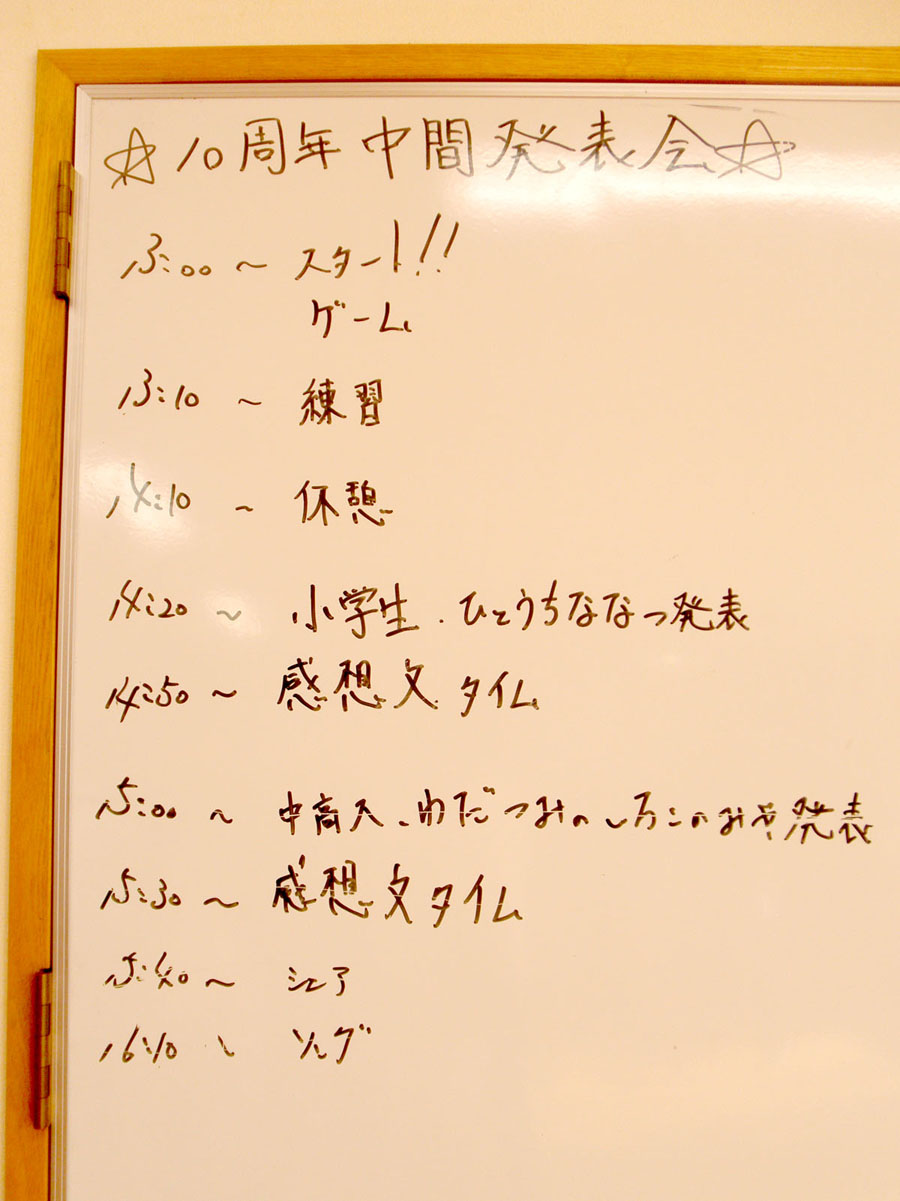 ☆10周年中間発表会☆
13:00 ~ スタート!!
ゲーム
13:10 ~ 練習
14:10 ~ 休憩
14:20 ~ 小学生・ひとうちななつ発表
14:50 ~ 感想文タイム
15:00 ~ 中高大、わだつみのいろこのみや発表
15:30 ~ 感想文タイム
15:40 ~ シェア
16:10 ~ ソング